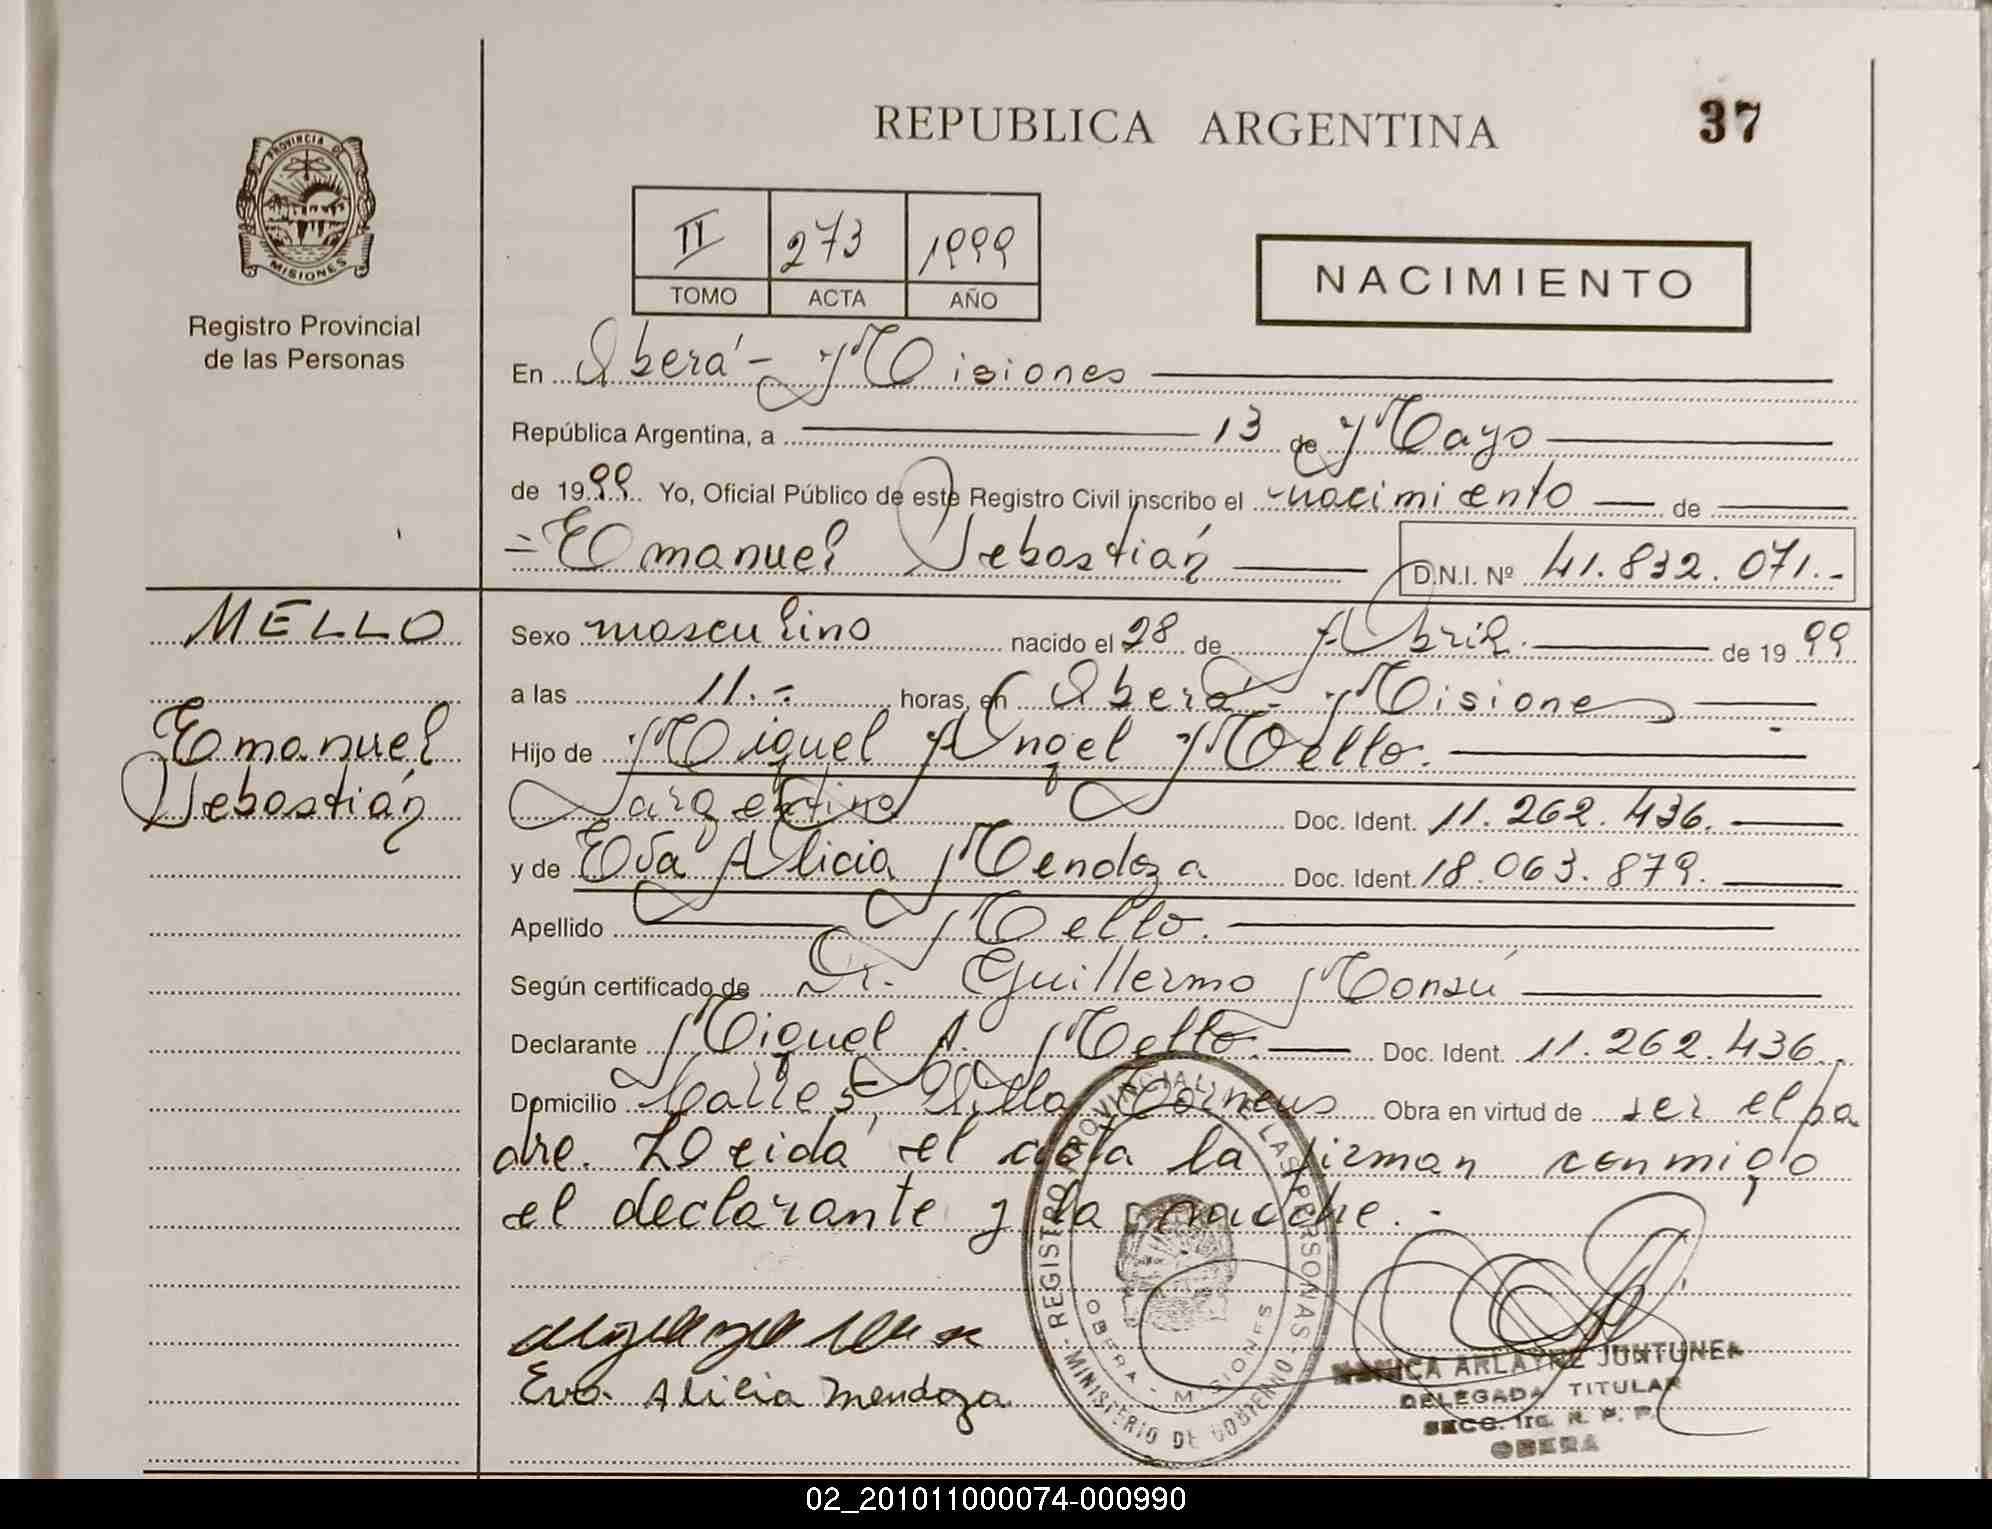 REPUBLICA ARGENTINA
37
PROVINCIA DE
MISIONES
Registro Provincial
de las Personas
II 273 1999
TOMO ACTA AÑO
NACIMIENTO
En Oberá - Misiones
República Argentina, a 13 de Mayo
de 1999 Yo, Oficial Público de este Registro Civil inscribo el nacimiento de
= Emanuel Sebastián D.N.I. Nº 41.832.071.-
MELLO
Emanuel
Sebastián
Sexo masculino nacido el 28 de Abril. de 1999
a las 11.- horas, en Oberá - Misiones
Hijo de Miguel Angel Mello.
argentino Doc. Ident. 11.262.436.
y de Eva Alicia Mendoza Doc. Ident. 18.063.879.
Apellido Mello.
Según certificado de Dr. Guillermo Monsú
Declarante Miguel A. Mello. Doc. Ident. 11.262.436.
Domicilio Calle S, Villa Torneus Obra en virtud de ser el pa
dre. Leida el acta la firman conmigo
el declarante y la madre.-
Eva Alicia Mendoza
REGISTRO PROVINCIAL DE LAS PERSONAS - MINISTERIO DE GOBIERNO
OBERA - MISIONES
MONICA ARLAYNE JUNTUNEN
DELEGADA TITULAR
SECC. 1ra. R. P. P.
OBERA
02_201011000074-000990